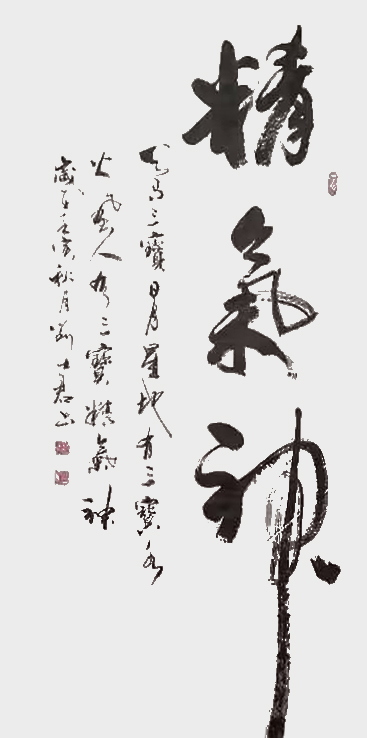 精氣神
天有三寶日月星地有三寶水
火風人有三寶精氣神
歲在壬寅秋月劉士君書